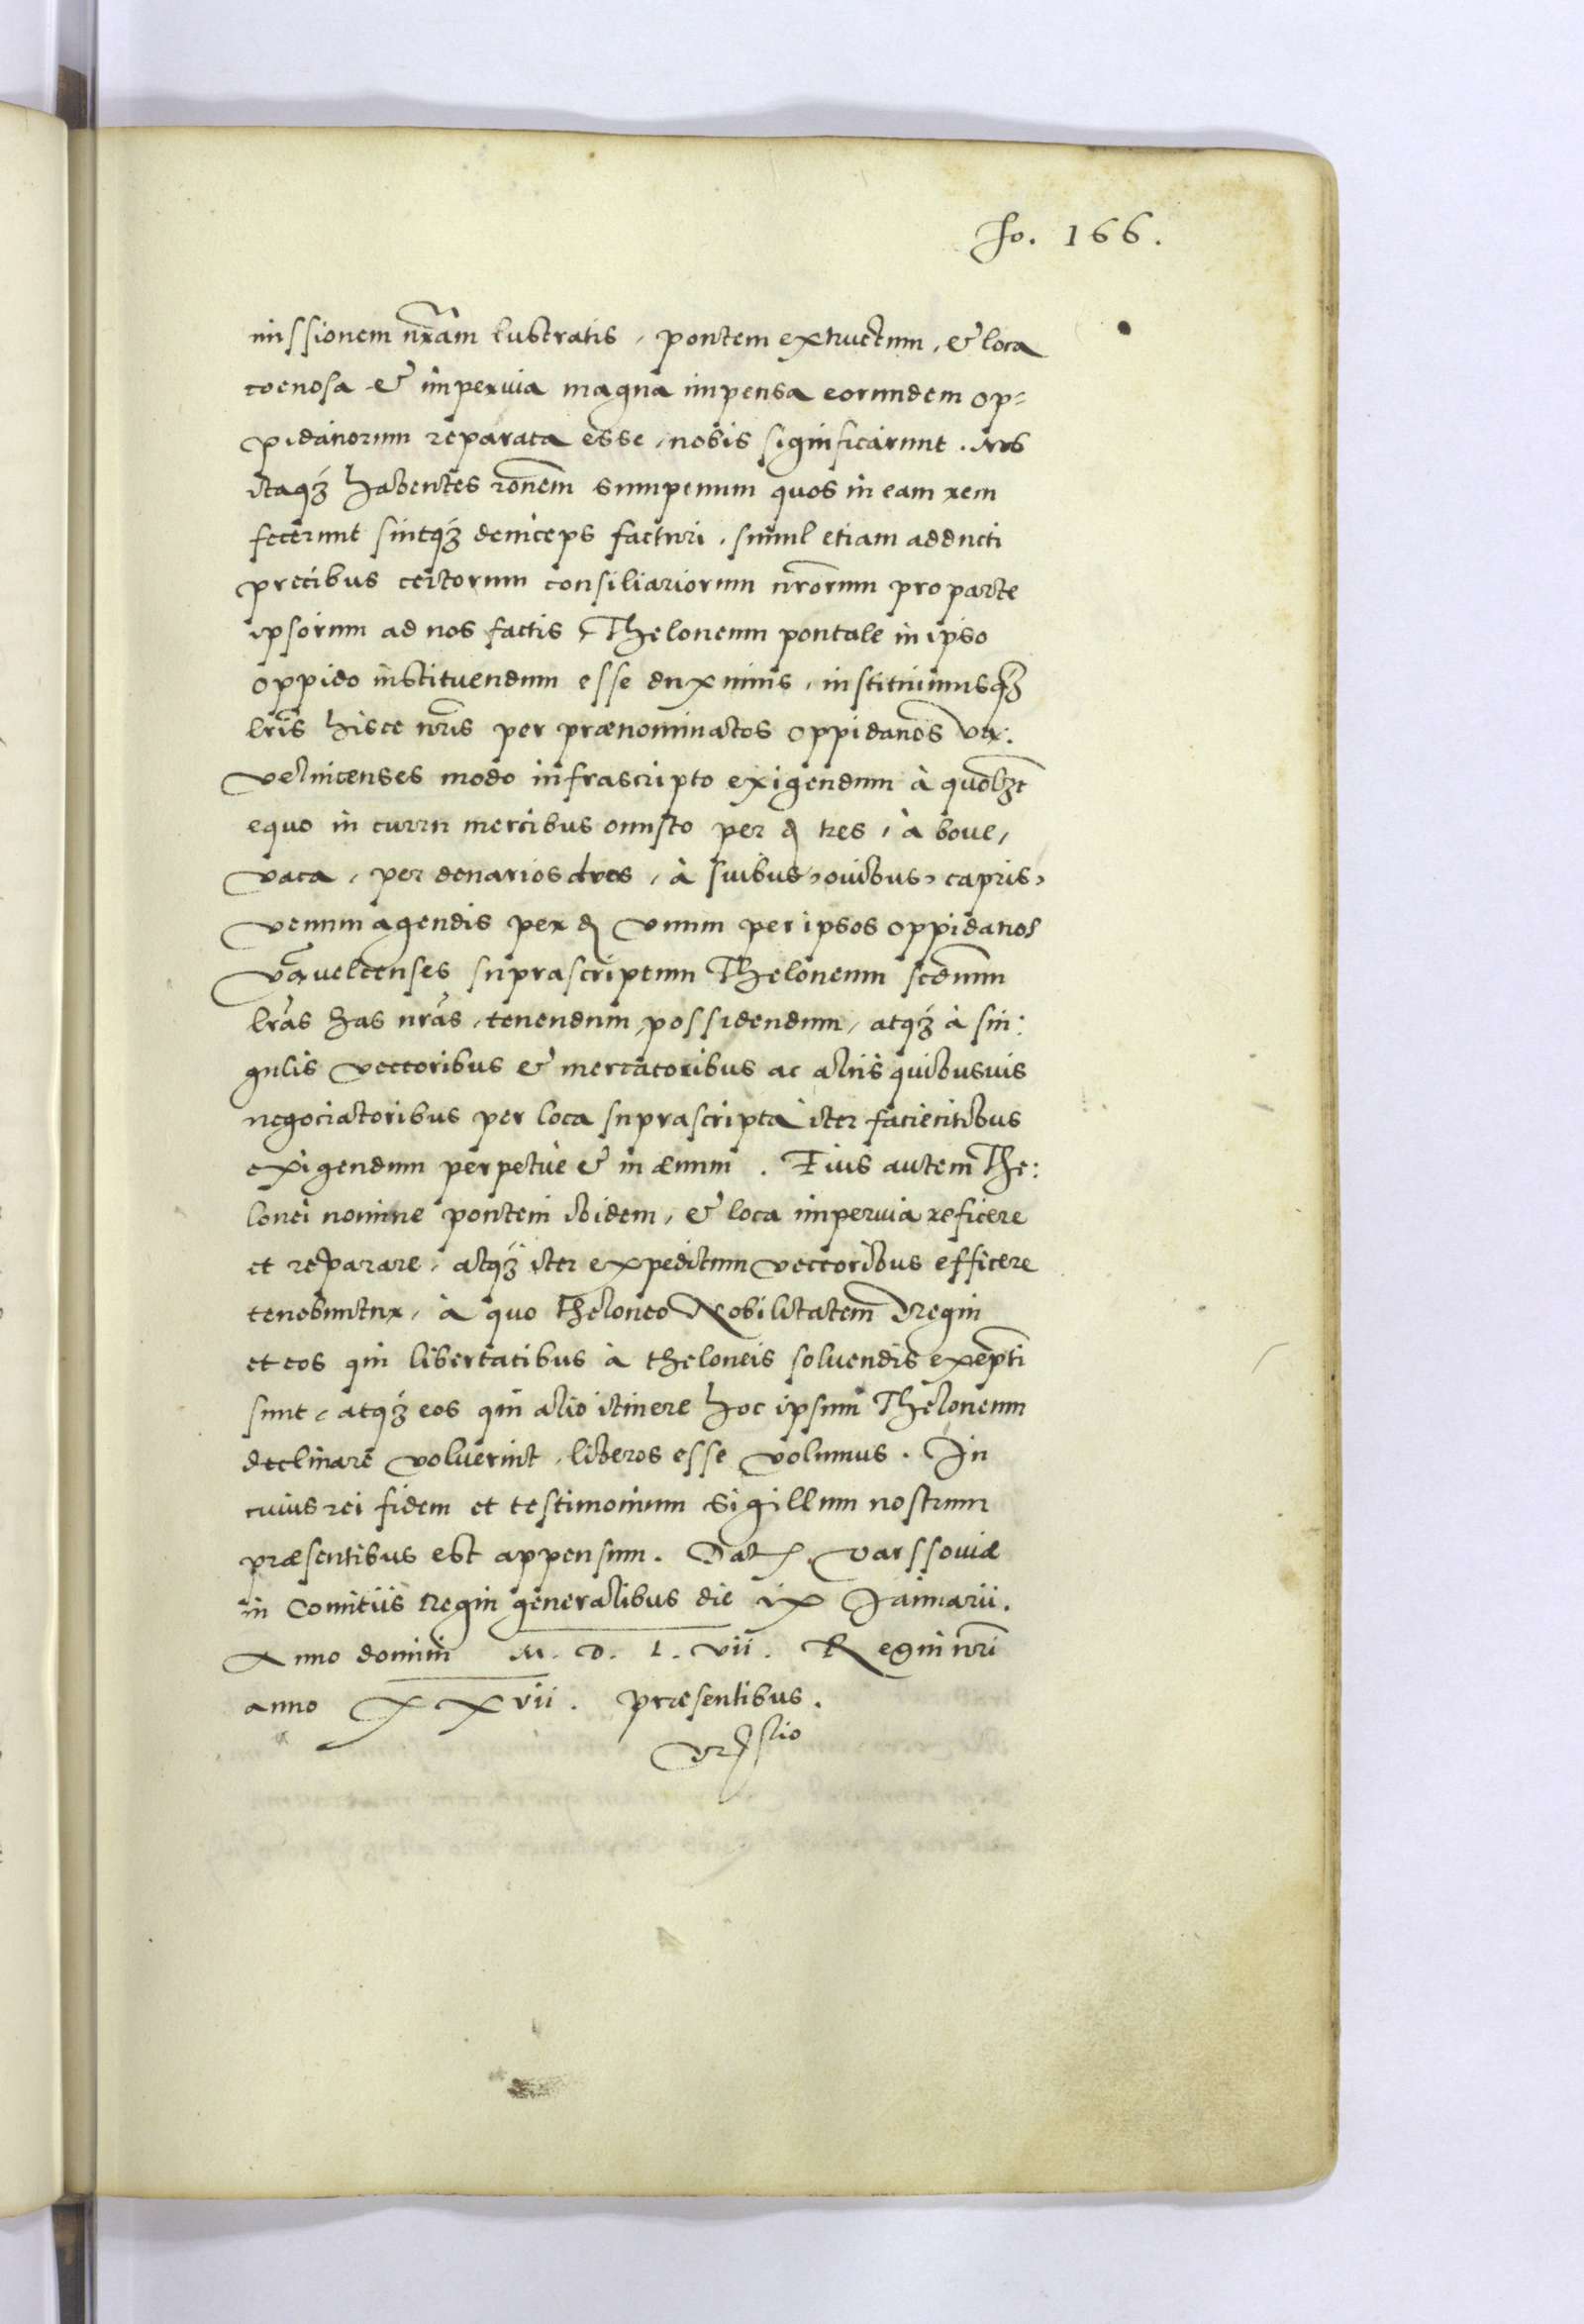 fo. 166.
missionem nrãm lustratis, pontem extructum, & loca
coenosa & impervia magna impensa eorundem op=
pidanorum reparata esse, nobis significarunt. Nos
itaqȝ habentes rõnem sumptuum quos in eam rem
fecerunt sintqȝ deinceps facturi, simul etiam adducti
precibus certorum consiliariorum nrõrum pro parte
ipsorum ad nos factis, Theloneum pontale in ipso
oppido instituendum esse duximus, instituimusqȝ
lrĩs hisce nrĩs per prænominatos oppidanos Var:
velnicenses modo infrascripto exigendum à quolȝt
equo in curru mercibus onusto per đ tres, à boue,
vaca, per denarios duos, à suibus, ouibus, capris,
venum agendis per đ vnum per ipsos oppidanos
suprascriptum Theloneum scđum
lrãs has nrãs, tenendum, possidendum, atqȝ à sin:
gulis vectoribus & mercatoribus ac aliis quibusuis
negociatoribus per loca suprascripta iter facientibus
exigendum perpetuè & in æuum. Eius autem The:
lonei nomine pontem ibidem, & loca impervia reficere
et reparare, atqȝ iter expeditum vectoribus efficere
tenebuntur, à quo theloneo Nobilitatem Regni
et eos qui libertatibus à theloneis soluendis exempti
sunt, atqȝ eos qui alio itinere hoc ipsum Theloneum
declinare voluerint, liberos esse volumus. In
cuius rei fidem et testimonium sigillum nostrum
præsentibus est appensum. Dat. Varssouiæ
in Comitiis Regni generalibus die ix Januarii.
Anno domini M. D. L. vii. Regni nrĩ
anno XXvii. præsentibus.